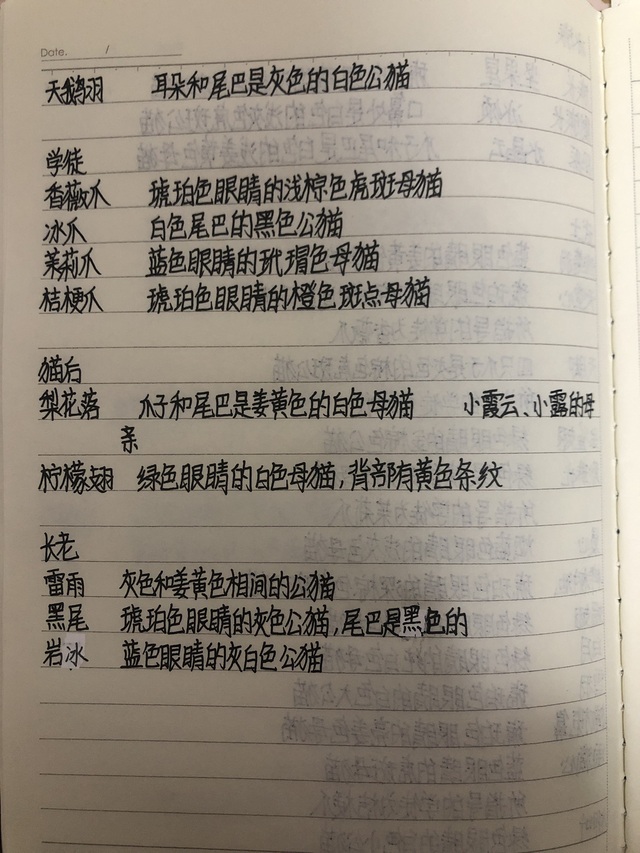 Date. /
天鹅羽 耳朵和尾巴是灰色的白色公猫
学徒
香薇爪 琥珀色眼睛的浅棕色虎斑母猫
冰爪 白色尾巴的黑色公猫
茉莉爪 蓝色眼睛的玳瑁色母猫
桔梗爪 琥珀色眼睛的橙色斑点母猫
猫后
梨花落 爪子和尾巴是姜黄色的白色母猫 小霞云、小露的母
亲
柠檬翅 绿色眼睛的白色母猫,背部有黄色条纹
长老
雷雨 灰色和姜黄色相间的公猫
黑尾 琥珀色眼睛的灰色公猫,尾巴是黑色的
岩冰 蓝色眼睛的灰白色公猫